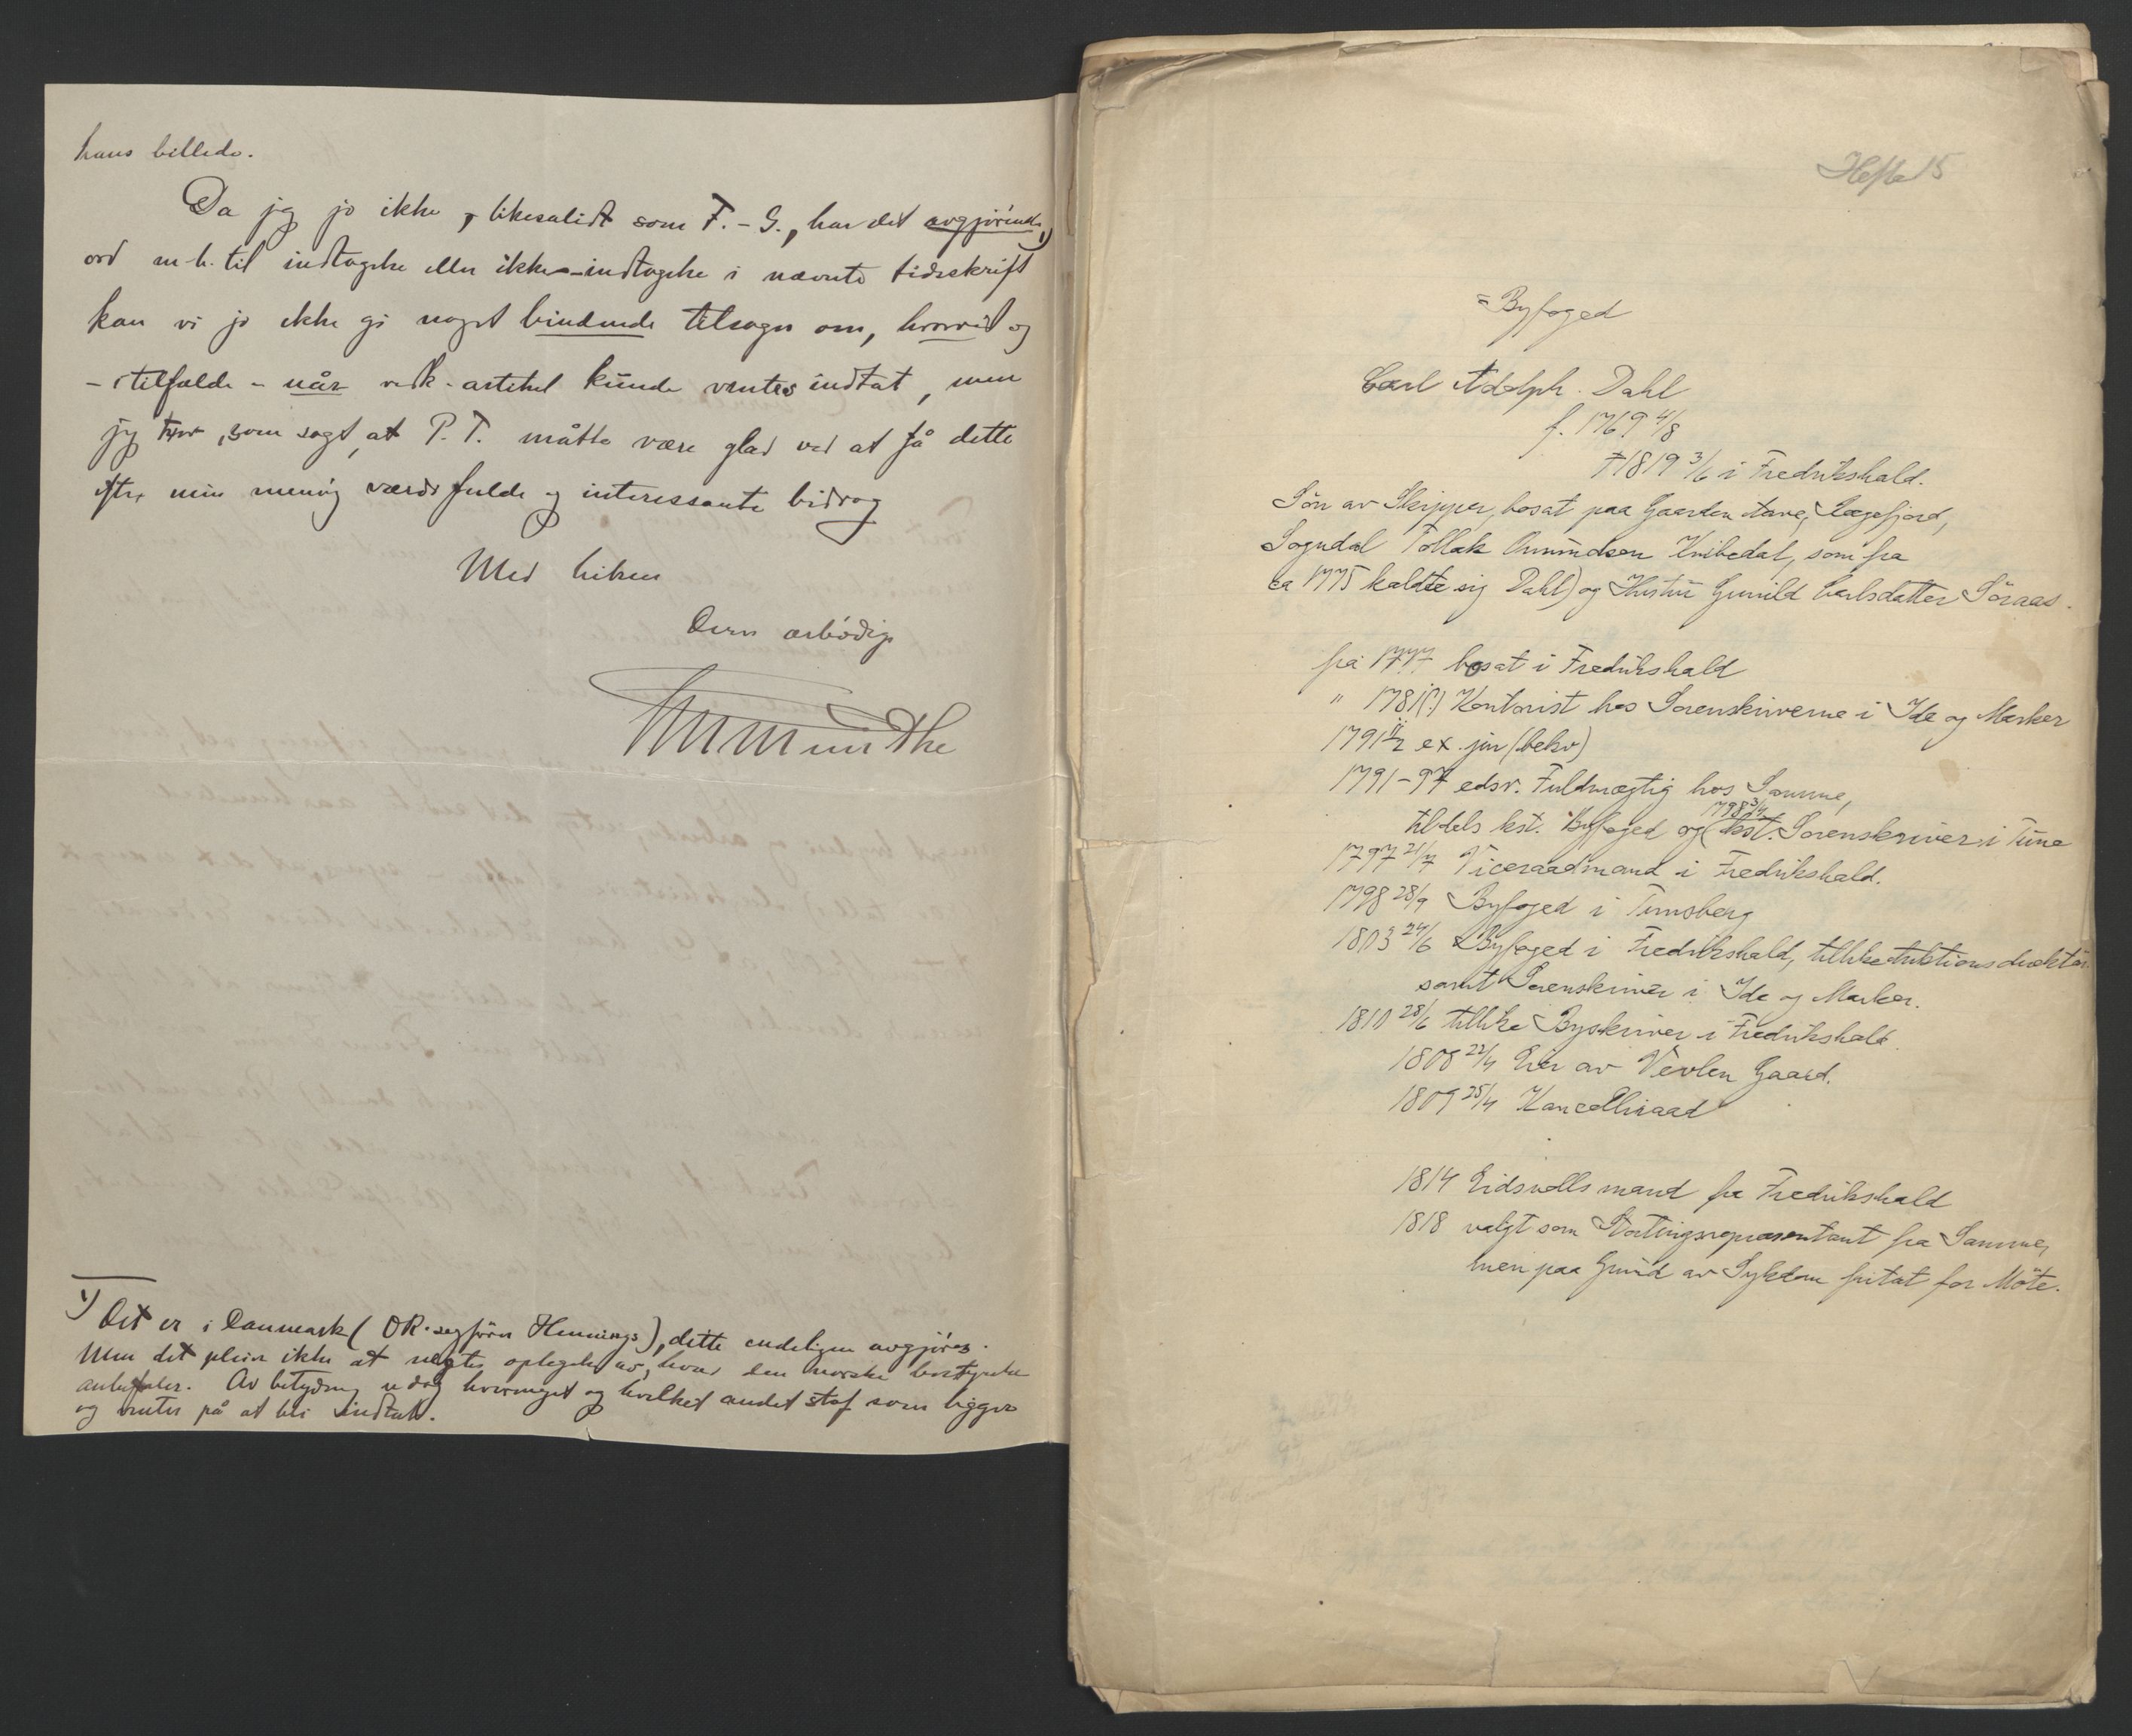 hans billede.
Da jeg jo ikke, likesålidt som F.-G., har det avgjørende 1)
ord m.h. til indtagelse eller ikke-indtagelse i nævnte tidsskrift
kan vi jo ikke gi noget bindende tilsagn om, hvorvidt og
- i tilfælde - når vedk. artikel kunde ventes indtat, men
jeg tror, som sagt, at P. T. måtte være glad ved at få dette
efter min mening værdifulde og interessante bidrag
Med hilsen
Deres ærbødige
Munthe
1) Det er i Danmark (OR.sagfører Hennings), dette endeligen avgjøres.
Men det pleier ikke at negtes optagelse av, hvad den norske bestyrelse
anbefaler. Av betydning er dog hvormeget og hvilket andet stof som ligger
og venter på at bli indtat.
Hefte 15
Byfoged
Carl Adolph Dahl
f. 1769 4/8
† 1819 3/6 i Fredrikshald.
Søn av Skipper, bosat paa Gaarden Aave, Rægefjord,
Sogndal Tollak Omundsen Kvibedal, som fra
ca 1775 kaldte sig Dahl) og Hustru Gunild Carlsdatter Søraas.
fra 1777 bosat i Fredrikshald
" 1781(?) Kontorist hos Sorenskriverne i Ide og Marker
1791 11/2 ex. jur (bekv)
1791-97 edsv. Fuldmægtig hos Samme,
tildels kst. Byfoged og (1798 3/4 kst. Sorenskriver i Tune
1797 21/7 Viceraadmand i Fredrikshald.
1798 28/9 Byfoged i Tunsberg
1803 24/6 Byfoged i Fredrikshald, tillike Auktionsdirektør
samt Sorenskriver i Ide og Marker.
1810 28/6 tillike Byskriver i Fredrikshald.
1808 22/4 Eier av Vevlen Gaard.
1809 25/4 Kancelliraad
1814 Eidsvollsmand fra Fredrikshald
1818 valgt som Stortingsrepræsentant fra Samme,
men paa Grund av Sykdom fritat for Møte.